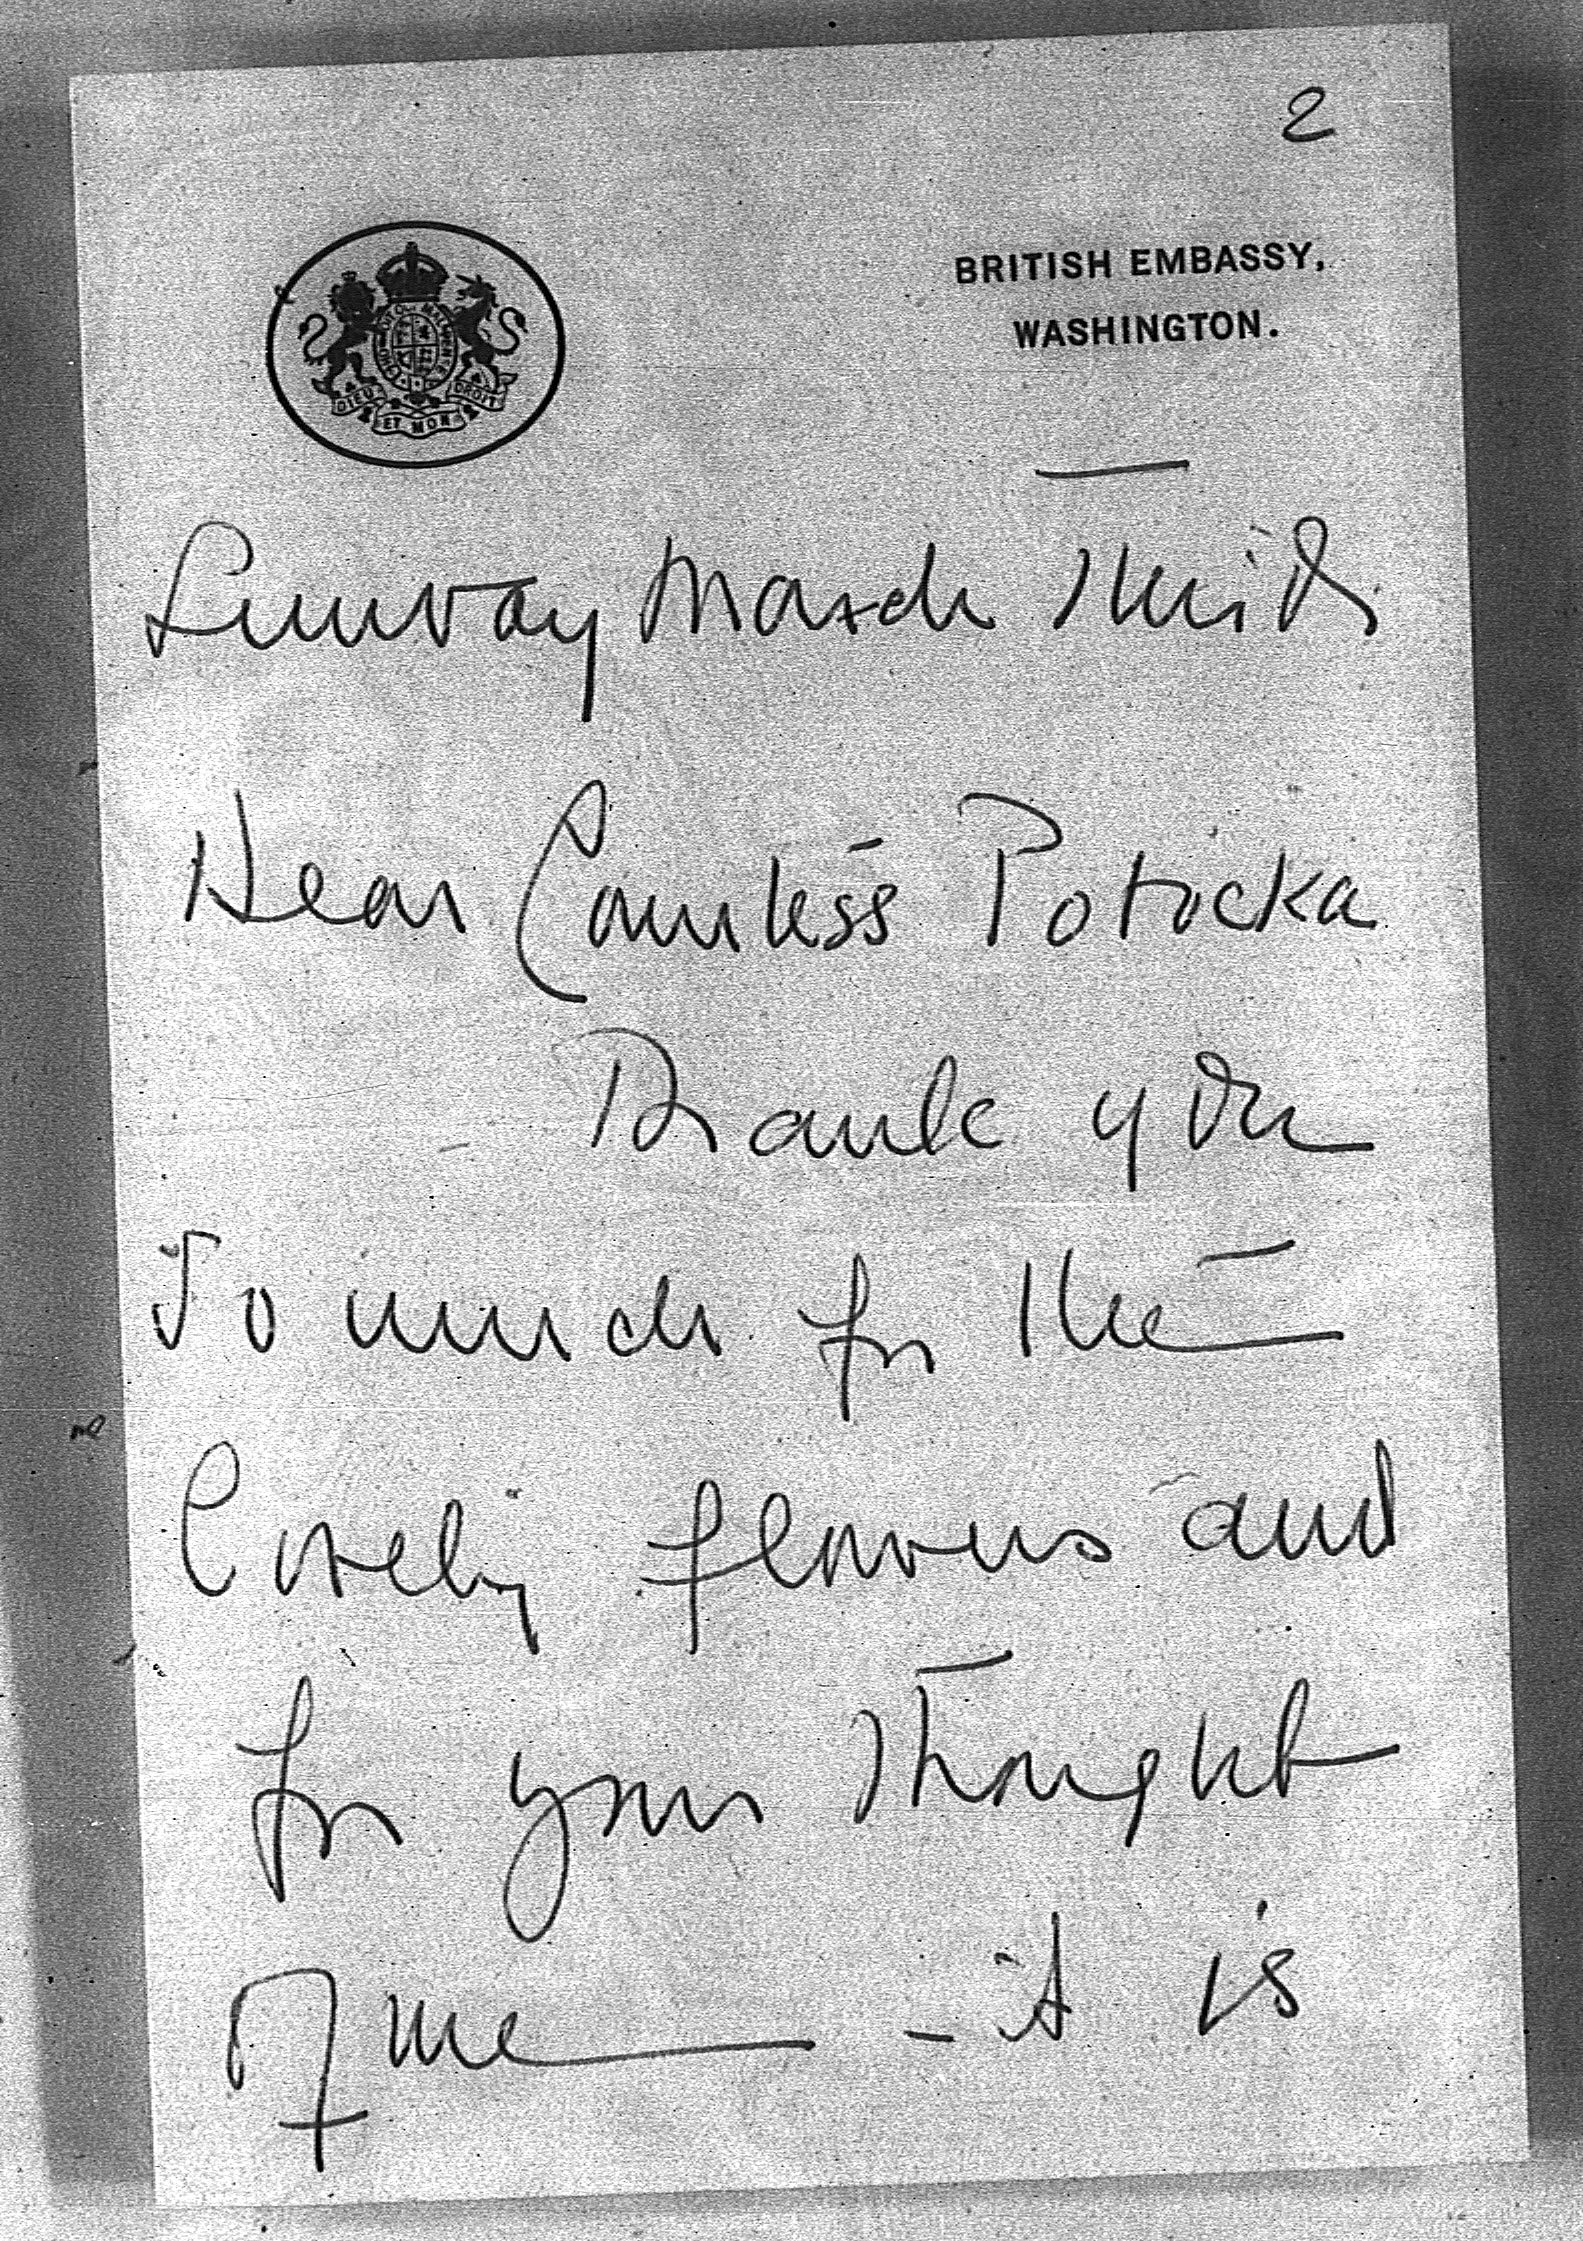 2
BRITISH EMBASSY,
WASHINGTON.
DIEU ET MON DROIT
Sunday March Third
Dear Countess Potocka
Thank you
so much for the
lovely flowers and
for your thought
of me - it is